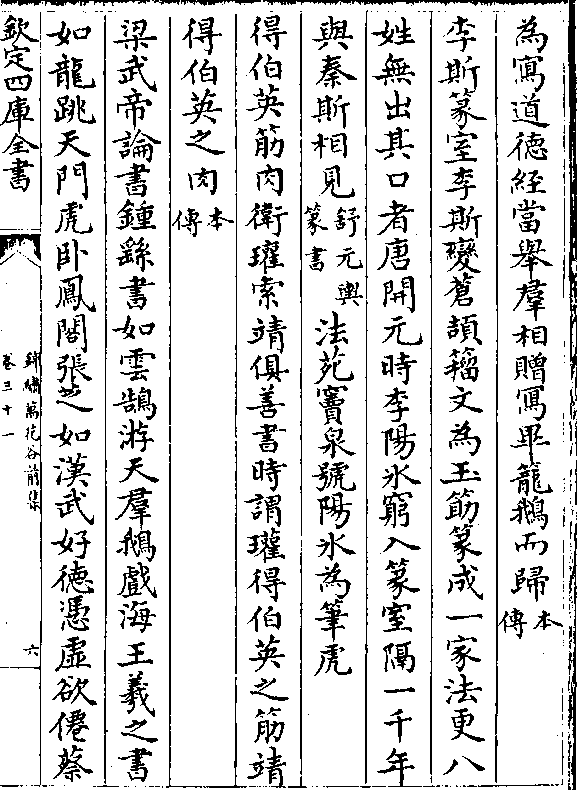 為寫道德經當舉羣相贈寫畢籠鵝而歸本傳
李斯篆室李斯變蒼頡籀文為玉筯篆成一家法更八
姓無出其口者唐開元時李陽氷窮入篆室隔一千年
與秦斯相見舒元輿篆書法苑竇泉號陽氷為筆虎
得伯英筋肉衛瓘索靖俱善書時謂瓘得伯英之筋靖
得伯英之肉本傳
梁武帝論書鍾繇書如雲鵠游天羣鵝戲海王羲之書
如龍跳天門虎卧鳳閣張芝如漢武好徳憑虛欲僊蔡
欽定四庫全書
錦繡萬花谷前集
卷三十一
六